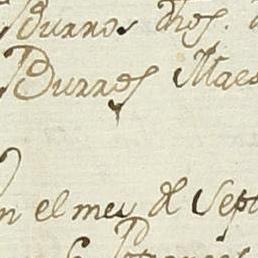 Burros dhos.
Burros Maes
n el mes de Sept